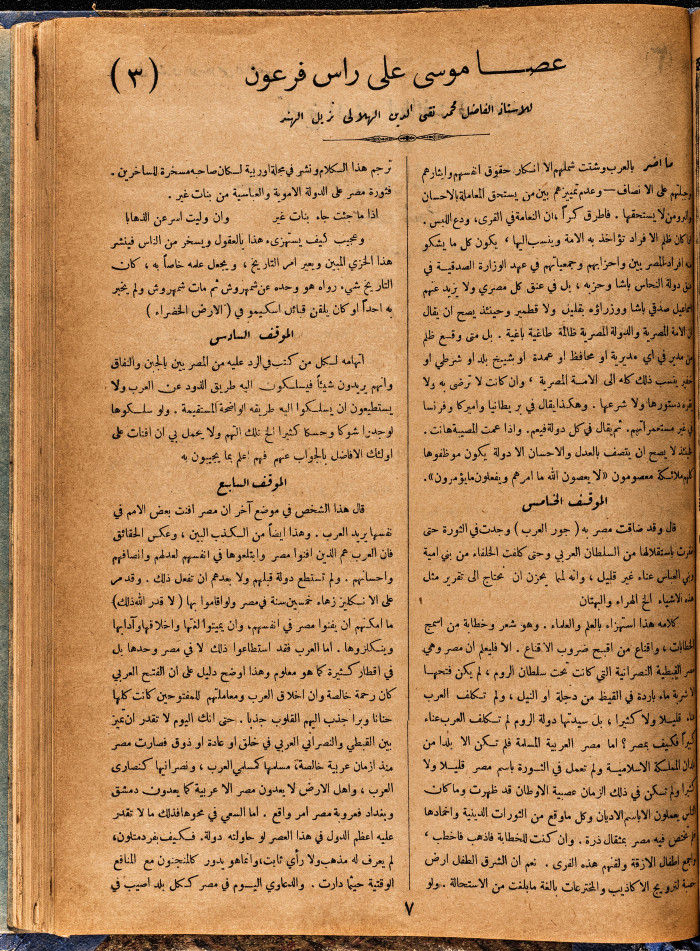 عصا موسى على راس فرعون
(٣)
للاستاذ الفاضل محمد تقي الدين الهلالي نزيل الهند
ما اضر بالعرب وشتت شملهم الا انكار حقوق انفسهم وايثارهم
على الا نصاف — وعدم تمييزهم بين من يستحق المعاملة بالاحسان
ومن لا يستحقها . فاطرق كرا ، ان النعامة في القرى ، ودع اللبس .
كان ظلم الا فراد تؤاخذ به الامة وينسب اليها ، يكون كل ما يشكو
افراد المصر يين واحزابهم وجمعياتهم في عهد الوزارة الصدقية في
دولة النحاس باشا وحزبه ، بل في عنق كل مصري ولا يزيد عنهم
صدقي باشا ووزراؤه بقليل ولا قطمير وحينئذ يصح ان يقال
الامة المصرية والدولة المصرية ظالمة طاغية باغية . بل متى وقع ظلم
من مدير في اي مديرية او محافظ او عمدة او شيخ بلد او شرطي او
ينسب ذلك كله الى الامة المصرية ، وان كانت لا ترضى به ولا
دستورها ولا شرعها . وهكذا يقال في بر يطانيا واميركا وفرنسا
في غير مستعمراتهم . ثم يقال في كل دولة فيعم . واذا عمت المصيبة هانت .
لا يصح ان يتصف بالعدل والاحسان الا دولة يكون موظفوها
ملائكة معصومون «لا يعصون الله ما امرهم ويفعلون ما يؤمرون».
الموقف الخامس
قال وقد ضاقت مصر به ( جور العرب ) وجدت في الثورة حتى
باستقلالها من السلطان العربي وحتى كلفت الخلفاء من بني امية
وبني العباس عناء غير قليل ، وانه لمما يحزن ان يحتاج الى تقرير مثل
هذه الاشياء الخ الهراء والبهتان
كلامه هذا استهزاء بالعلم والعلماء . وهو شعر وخطابة من اسمج
الخطابات ، واقناع من اقبح ضروب الاقناع . الا فليعلم ان مصر وهي
مصر القبطية النصرانية التي كانت تحت سلطان الروم ، لم يكن فتحها
الا شربة ماء باردة في القيظ من دجلة او النيل ، ولم تكلف العرب
قليلا ولا كثيرا ، بل سيدتها دولة الروم لم تكلف العرب عناء
كثيرا فكيف بمصر ؟ اما مصر العربية المسلمة فلم تكن الا بلدا من
المملكة الاسلامية ولم تعمل في الثورة باسم مصر قليلا ولا
كثيرا ولم تكن في ذلك الزمان عصبية الاوطان قد ظهرت وما كان
يعملون الا باسم الاديان وكل ما وقع من الثورات الدينية واخمادها
تختص فيه مصر بمثقال ذرة . وان كنت للخطابة فاذهب فاخطب ،
اطفال الازقة ولقنهم هذه الفرى . نعم ان الشرق الطفل ارض
خصبة لترويج الاكاذيب والمخترعات بالغة ما بلغت من الاستحالة .. ولو
ترجم هذا السكلام ونشر في مجلة اوربية لسكان صاحبه مسخرة للساخرين .
فثورة مصر على الدولة الاموية والعباسية من بنات غير .
اذا ما جئت جاء بنات غير وان وليت اسرعن الذهابا
وعجيب كيف يستهزيء هذا بالعقول ويسخر من الناس فينشر
هذا الخزي المبين ويعير امر التاريخ ، و يجعل علمه خاصاً به ، كان
التاريخ شيء رواه هو وحده عن شمهروش ثم مات شمهروش ولم يخبر
به احداً او كان يلقن قبائل اسكيمو في ( الارض الخضراء )
الموقف السادس
اتهامه لسكل من كتب في الرد عليه من المصر يين بالجبن والنفاق
وانهم يريدون شيئاً فيسلكون اليه طريق الذود عن العرب ولا
يستطيعون ان يسلكوا اليه طريقه الواضحة المستقيمة . ولو سلكوها
لوجدوا شوكا وحسكا كثيرا الخ تلك التهم ولا يجمل بي ان افتات على
اولئك الافاضل بالجواب عنهم فهم اعلم بما يجيبون به
الموقف السابع
قال هذا الشخص في موضع آخر ان مصر افنت بعض الامم في
نفسها يريد العرب . وهذا ايضاً من الكذب البين ، وعكس الحقائق
فان العرب هم الذين افنوا مصر وابتلعوها في انفسهم لعدلهم وانصافهم
واحسانهم . ولم تستطع دولة قبلهم ولا بعدهم ان تفعل ذلك . وقد مر
على الا نسكليز زهاء خمسين سنة في مصر ولو اقاموا بها ( لا قدر الله ذلك)
ما امكنهم ان يفنوا مصر في انفسهم، وان يميتوا لغتها واخلاقها وآدابها
وينكلزوها . اما العرب فقد استطاعوا ذلك لا في مصر وحدها بل
في اقطار كثيرة كما هو معلوم وهذا اوضح دليل على ان الفتح العربي
كان رحمة خالصة وان اخلاق العرب ومعاملتهم للمفتوحين كانت كلها
حنانا وبرا جذب اليهم القلوب جذبا . حتى انك اليوم لا تقدر ان تميز
بين القبطي والنصراني العربي في خلق او عادة او ذوق فصارت مصر
منذ ازمان عربية خالصة، مسلمها كمسلمي العرب ، ونصرانيها كنصارى
العرب ، واهل الارض لا يعدون مصر الا عربية كما يعدون دمشق
وبغداد فعروبة مصر امر واقع . اما السعي في محوها فذلك ما لا تقدر
عليه اعظم الدول في هذا العصر لو حاولته دولة. فكيف بفرد متلون،
لم يعرف له مذهب ولا رأي ثابت، وانما هو يدور كالمنجنون مع المنافع
الوقتية حيثما دارت . والدعاوي اليوم في مصر ككل بلد اصيب في
٧